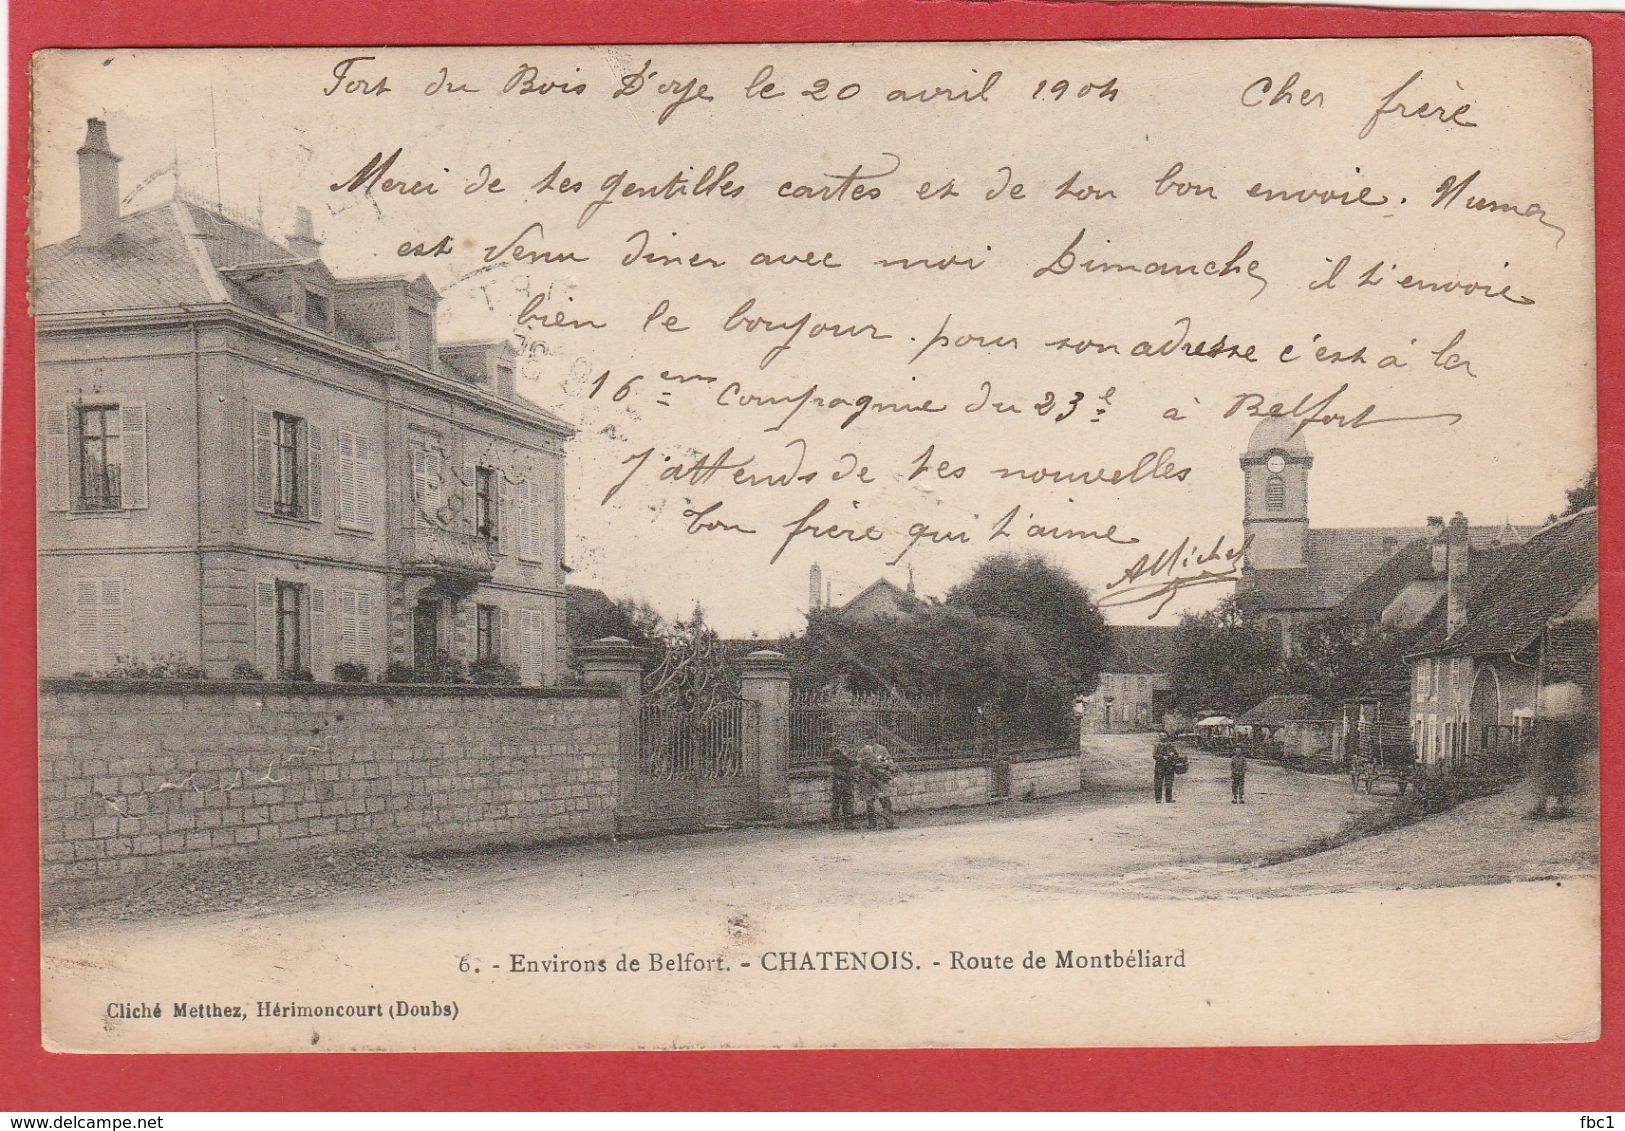 Fort du Bois D'oye le 20 avril 1904 Cher frère
Merci de tes gentilles cartes et de ton bon envoie. Numa
est venu diner avec moi Dimanche, il t'envoie
bien le bonjour. pour son adresse c'est à la
16ème Compagnie du 23e à Belfort
J'attends de tes nouvelles
Ton frère qui t'aime
AMichel
6. - Environs de Belfort. - CHATENOIS. - Route de Montbéliard
Cliché Metthez, Hérimoncourt (Doubs)
www.delcampe.net
fbc1